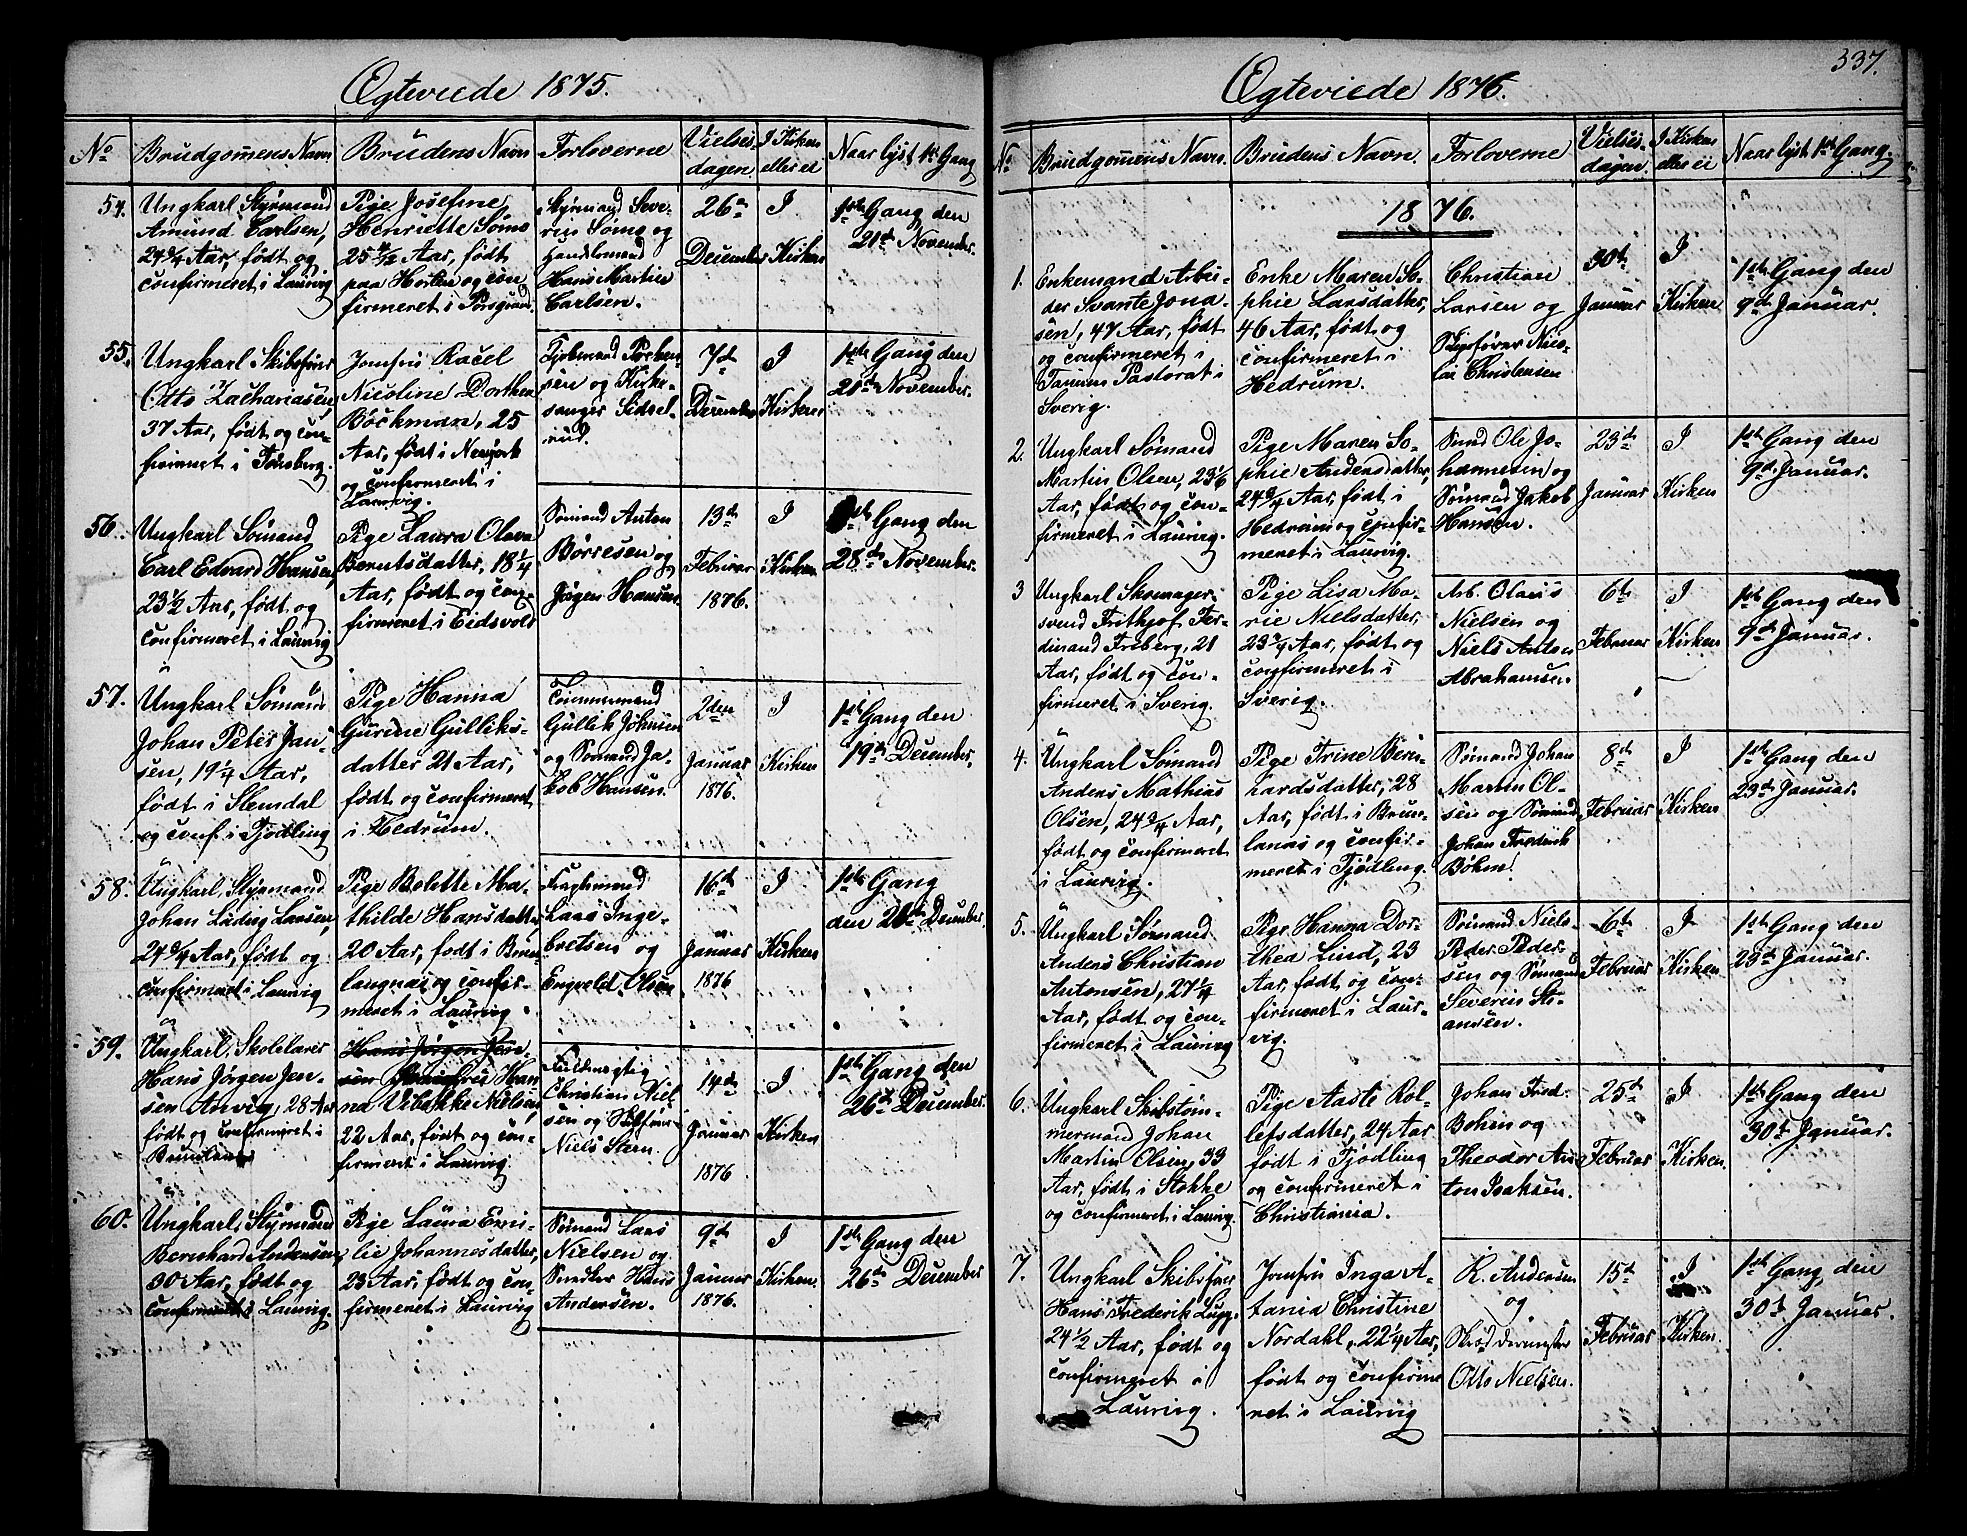 Ægteviede 1875.
No
Brudgommens Navn
Brudens Navn
Forloverne
Vielses
dagen
I Kirken
eller ei
Naar lyst 1ste Gang
54.
Ungkarl Styrmand
Amund Carlsen,
24 3/4 Aar, født og
confirmeret i Laurvig
Pige Josefine
Henriette Søms
25 1/2 Aar, født
paa Horten og con
firmeret i Porsgrund.
Styrmand Seve-
rin Søms og
Handelsmand
Hans Martin
Carlsen.
26de
December
I
Kirken
1ste Gang den
21de November.
55.
Ungkarl Skibsfører
Otto Zachariasen,
37 Aar, født og con-
firmeret i Tønsberg.
Jomfru Racel
Nicoline Dorthea
Böckman, 25
Aar, født i Newjork
og confirmeret i
Laurvig.
sen og Kirke-
sanger Sidsel-
rud.
7de
December
I
Kirken
1ste Gang den
21de November.
56.
Ungkarl Sømand
Carl Edvard Hansen,
23 1/2 Aar, født og
confirmeret i Laurvig
Pige Laura Olava
Berntsdatter, 18 1/4
Aar, født og con-
firmeret i Eidsvold
Sømand Anton
Børresen og
Jørgen Hansen.
13de
Februar
1876.
I
Kirken
1ste Gang den
28de November.
57.
Ungkarl Sømand
Johan Peter Jan-
sen, 19 1/4 Aar,
født i Slemdal
og conf. i Tjødling
Pige Hanna
Gurine Gulliks-
datter 21 Aar,
født og confirmeret
i Hedrum.
Tømmermand
Gullik Johnsen
og Sømand Ja-
kob Hansen.
2den
Januar
1876.
I
Kirken
1ste Gang den
19de December.
58.
Ungkarl Styrmand
Johan Ludvig Larsen,
24 3/4 Aar, født og
confirmeret i Laurvig
Pige Bolette Ma-
thilde Hansdatter,
20 Aar, født i Brun-
langnæs og confir-
meret i Laurvig.
Lars Inge-
bretsen og
Engvald Olsen.
16de
Januar
1876
I
Kirken
1ste Gang
den 26de December.
59.
Ungkarl, Skolelærer
Hans Jørgen Jen-
sen Arvig, 28 Aar
født og confirmeret i
Brunlanes
Hans Jørgen Jen-
sen Jomfru Han-
na Vibekke Nielsen,
22 Aar, født og con-
firmeret i Laurvig.
Fuldmægtig
Christian Niel-
sen og Skibsfører
Niels Steen.
14de
Januar
1876
I
Kirken
1ste Gang den
26de December.
60.
Ungkarl, Styrmand
Bernhard Andersen,
30 Aar, født og
confirmeret i Laurvig.
Pige Laura Emi-
lie Johannesdatter,
23 Aar, født og con-
firmeret i Laurvig
Sømand Lars
Nielsen og
Snedker Hans
Andersen.
9de
Januar
1876.
I
Kirken.
1ste Gang den
26de December
337.
Ægteviede 1876.
No
Brudgommens Navn.
Brudens Navn.
Forloverne
Vielses-
dagen.
I Kirken
eller ei
Naar lyst 1ste Gang.
1876.
1.
Enkemand Arbei-
der Svante Jona-
sen, 47 Aar, født
og confirmeret i
Tanums Pastorat i
Sverig.
Enke Maren So-
phie Larsdatter,
46 Aar, født og
confirmeret i
Hedrum.
Christian
Larsen og
Skipsfører Nico-
lai Christensen
30te
Januar
I
Kirken
1ste Gang den
9de Januar.
2.
Ungkarl Sømand
Martin Olsen, 23 1/2
Aar, født og con-
firmeret i Laurvig.
Pige Maren So-
phie Andersdatter,
24 3/4 Aar, født i
Hedrum og confir-
meret i Laurvig.
Smed Ole Jo-
hannesen og
Sømand Jakob
Hansen.
23de
Januar
I
Kirken
1ste Gang den
9de Januar.
3
Ungkarl Skomager-
svend Frithjof Fer-
dinand Friberg, 21
Aar, født og con-
firmeret i Sverig.
Pige Lisa Ma-
rie Nielsdatter,
23 3/4 Aar, født og
confirmeret i
Sverig.
Arb. Olaus
Nielsen og
Niels Anton
Abrahamsen
6te
Februar
I
Kirken
1ste Gang den
9de Januar.
4.
Ungkarl Sømand
Anders Mathias
Olsen, 24 3/4 Aar,
født og confirmeret
i Laurvig.
Pige Trine Bern-
hardsdatter, 28
Aar, født i Brun-
lanæs og confir-
meret i Tjødling.
Sømand Johan
Martin Ol-
sen og Sømand
Johan Frederik
Bohm.
8de
Februar
I
Kirken
1ste Gang den
23de Januar.
5.
Ungkarl Sømand
Anders Christian
Antonsen, 27 1/4
Aar, født og con-
firmeret i Laurvig
Pige Hanna Dor-
thea Lind, 23
Aar, født og con-
firmeret i Laur-
vig.
Sømand Niels
Peder Peder-
sen og Sømand
Severin
6te
Februar
I
Kirken
1ste Gang den
23de Januar.
6.
Ungkarl Skibstøm-
mermand Johan
Martin Olsen, 33
Aar, født i Stokke
og confirmeret i Laurvig.
Pige Aaste Rol-
lefsdatter, 24 Aar
født i Tjødling
og confirmeret i
Christiania.
Johan Fred.
Bohm og
Theodor An-
ton Isaksen.
25de
Februar
I
Kirken.
1ste Gang den
30te Januar.
7.
Ungkarl Skibsfører
Hans Frederik Lugg.
24 1/2 Aar, født og
confirmeret i
Laurvig.
Jomfru Inga A-
tania Christine
Nordahl, 22 1/4 Aar,
født og confirme
ret i Laurvig
R. Andersen
og
Skræddermester
Otto Nielsen.
15de
Februar
I
Kirken.
1ste Gang, den
30te Januar.